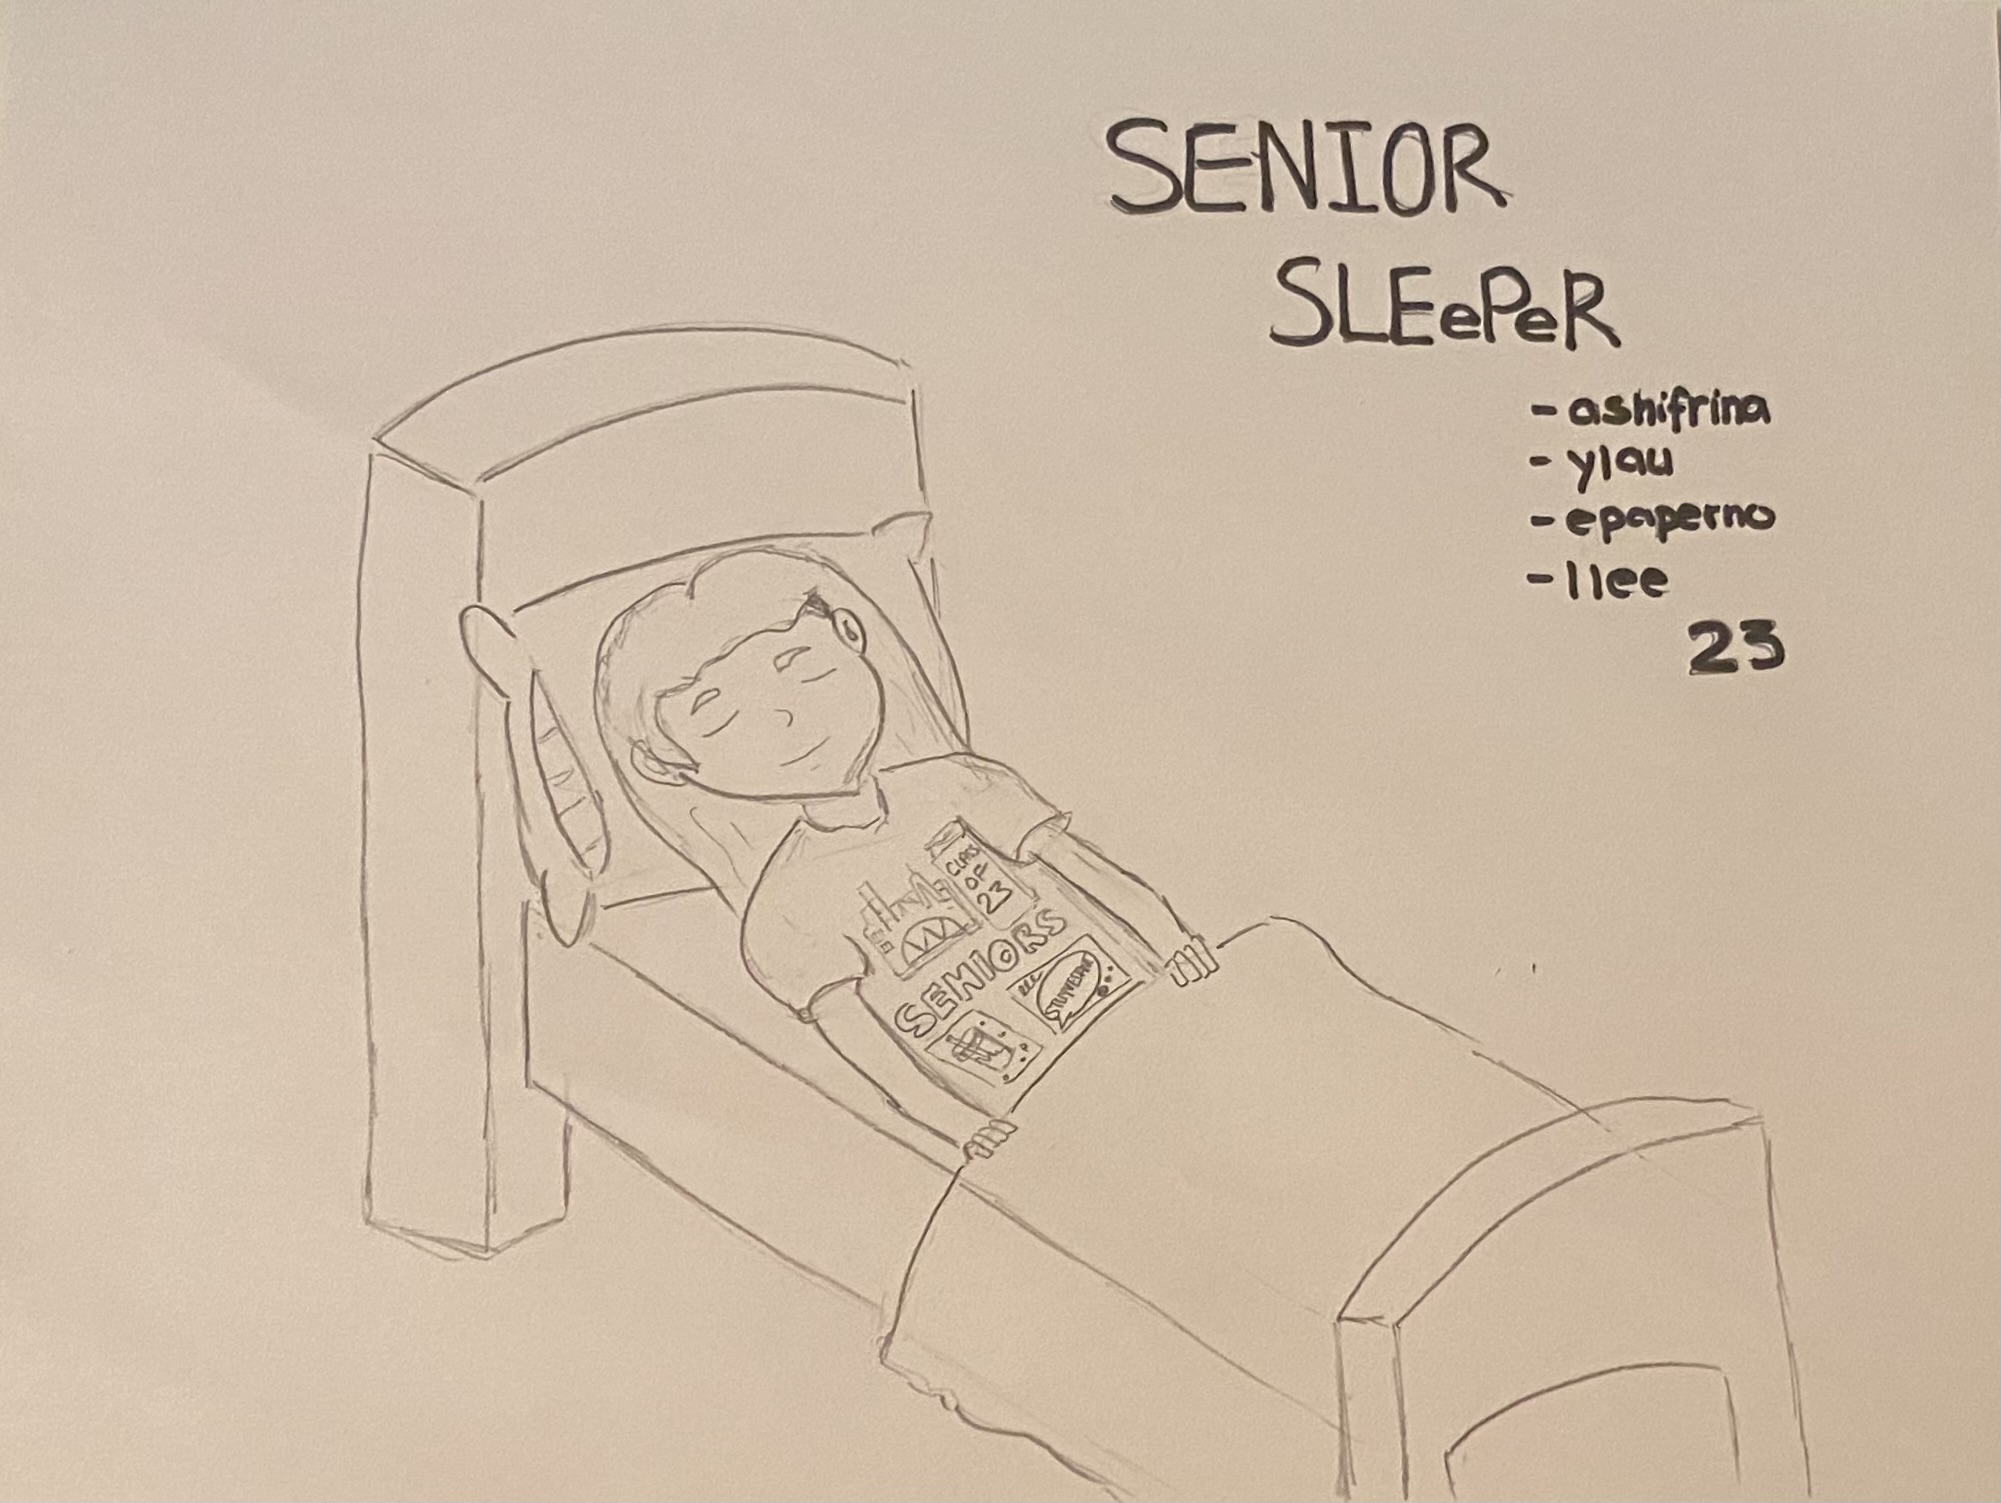 SENIOR
SLEePeR
- ashifrina
- ylau
- epaperno
- llee
23
CLASS
OF
23
SENIORS
STUYVESANT